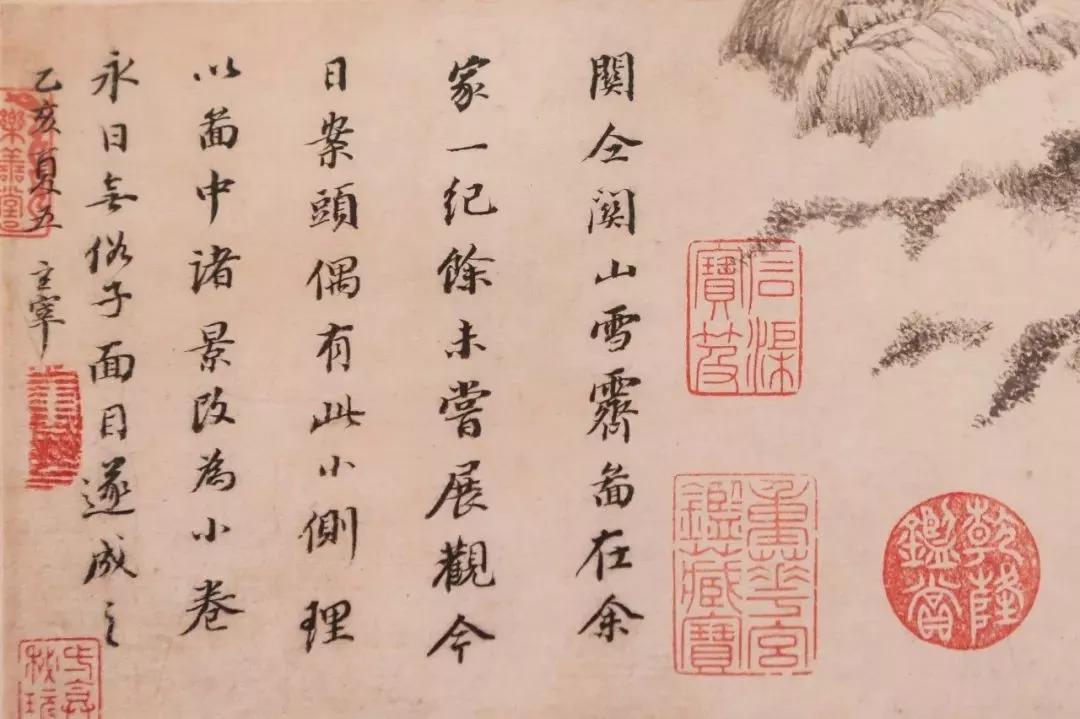 乾隆鑑賞
石渠寶笈
重華宮鑑藏寶
關仝關山雪霽啚在余
家一紀餘未嘗展觀今
日案頭偶有此小側理
以啚中諸景改為小卷
永日無俗子面目遂成之
乙亥夏五 玄宰
樂善堂